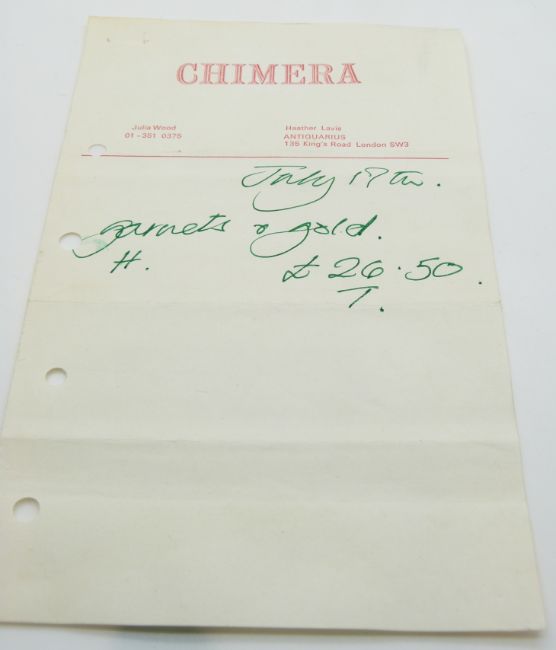 CHIMERA
Julia Wood
01-351 0375
Heather Lavis
ANTIQUARIUS
135 King's Road London SW3
July 19th.
garnets & gold.
H. £26.50.
T.